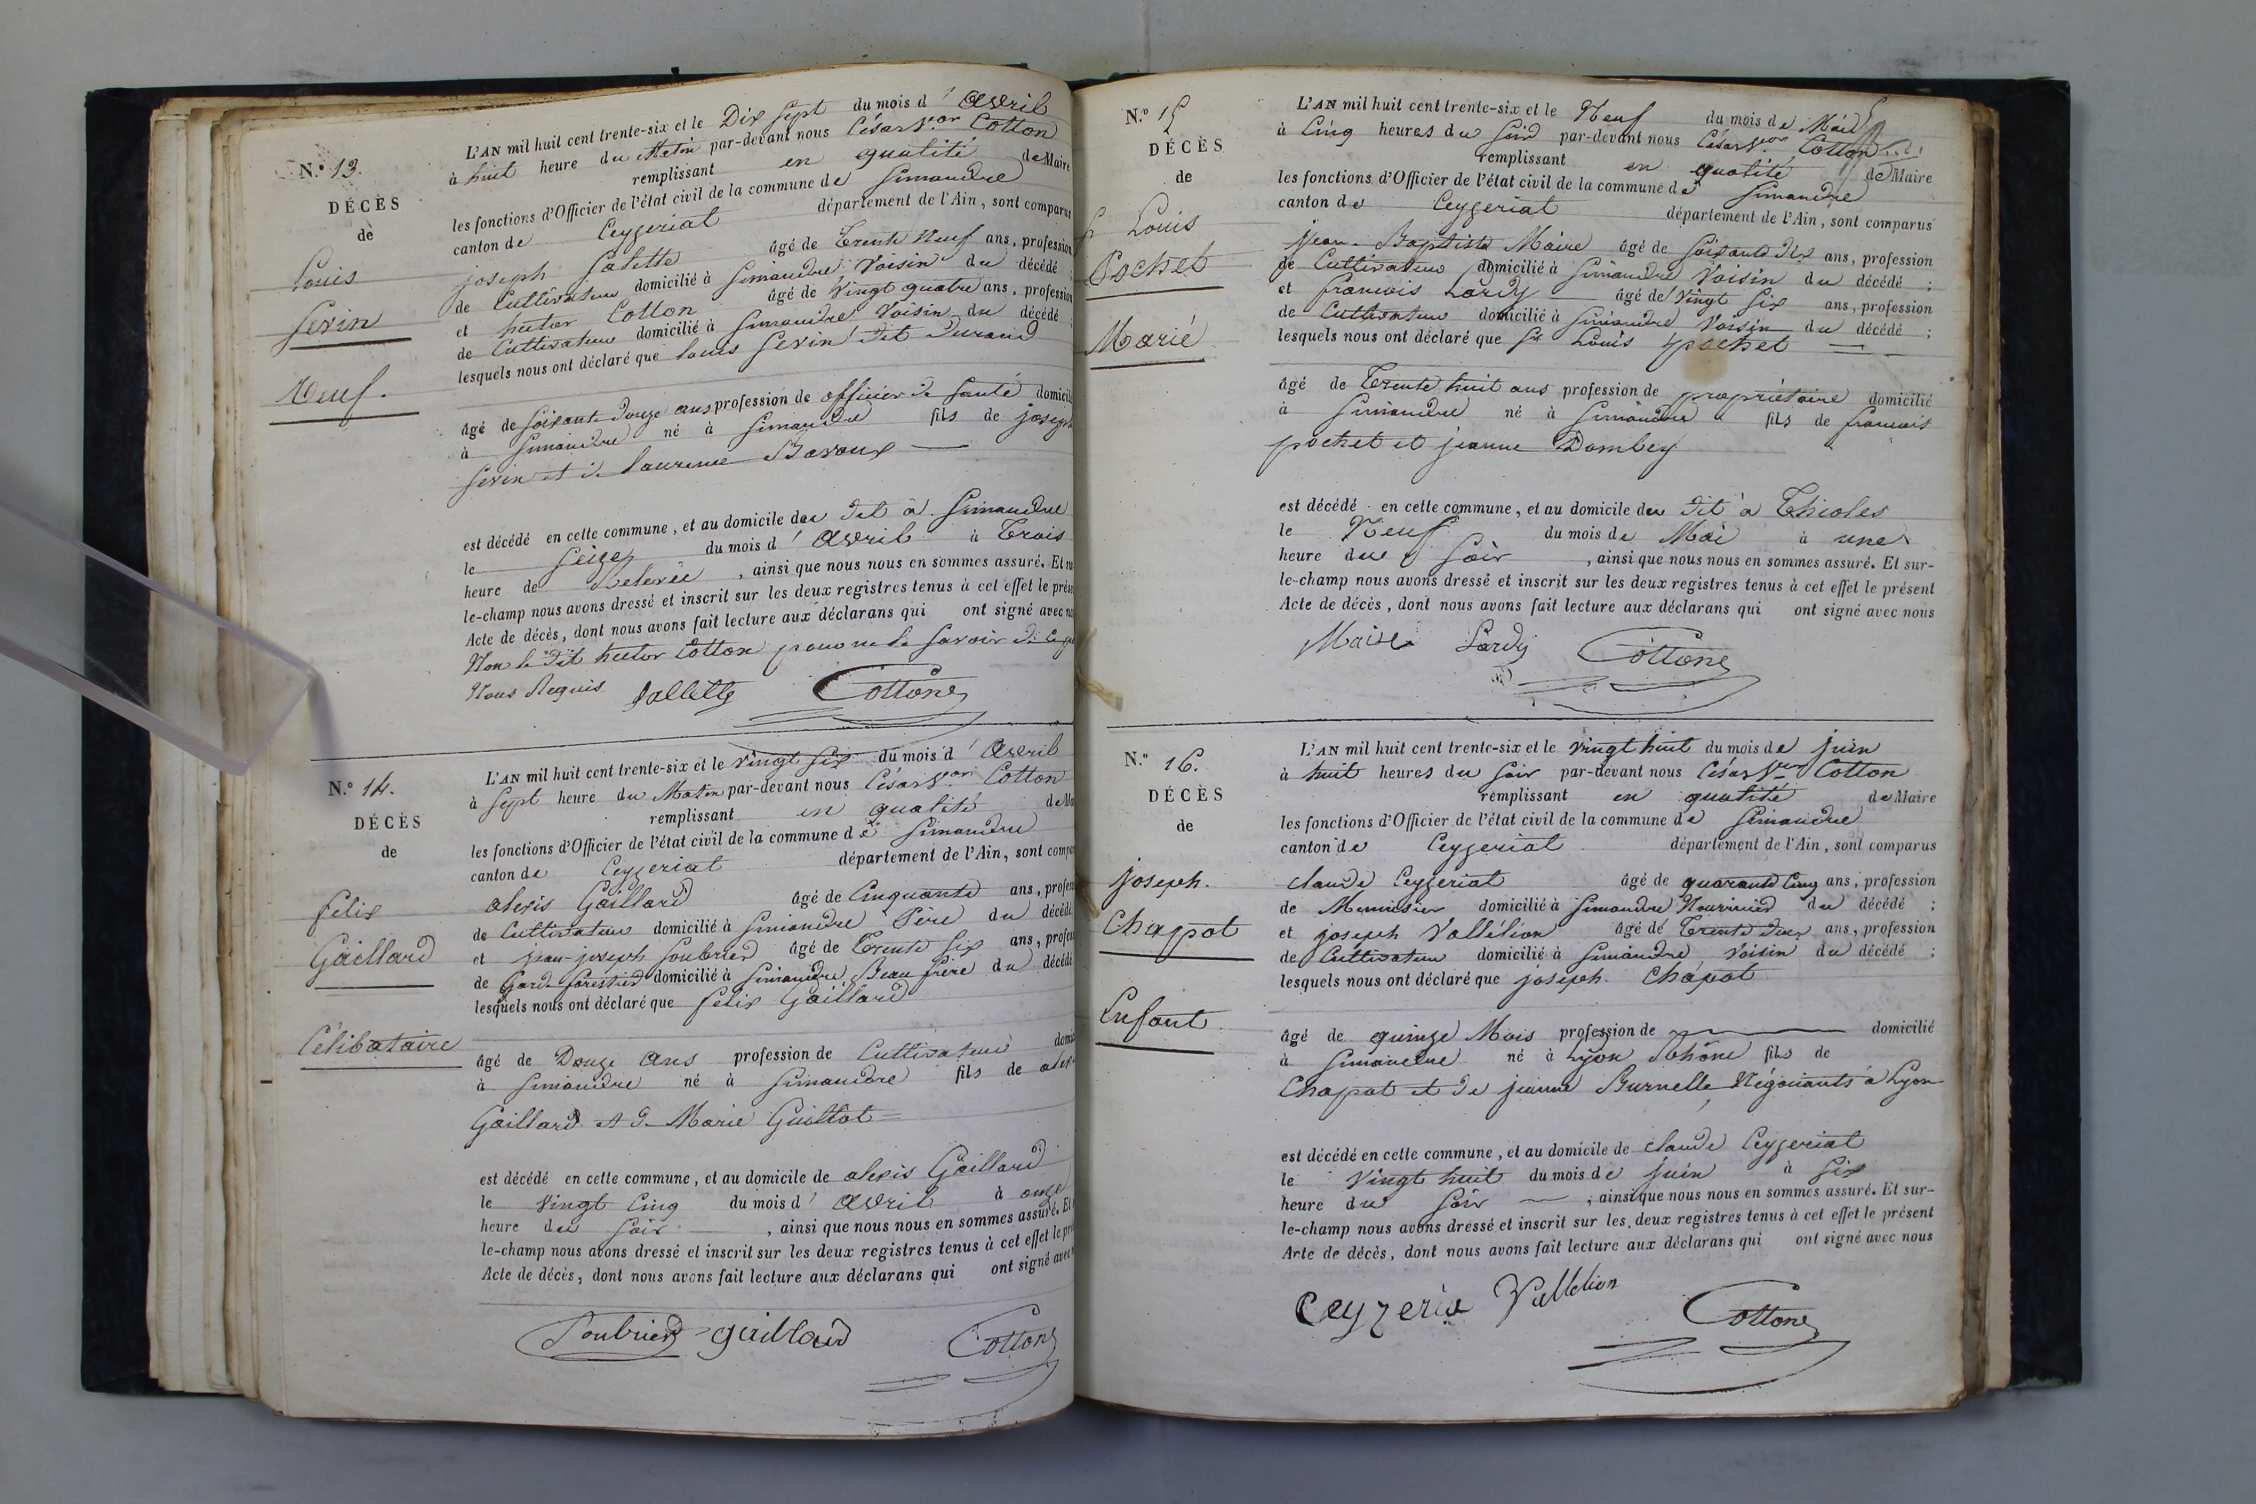 N.° 13.
DÉCÈS
de
Louis
Sevin
Veuf.
L'AN mil huit cent trente-six et le Dix Sept du mois d' Avril
à huit heure du Matin par-devant nous César V.or Cotton
remplissant en qualité de Maire
les fonctions d'Officier de l'état civil de la commune de Simandre
canton de Ceyzeriat département de l'Ain, sont comparus
joseph Salette âgé de Trente Neuf ans, profession
de Cultivateur domicilié à Simandre Voisin du décédé ;
et hector Cotton âgé de Vingt quatre ans, profession
de Cultivateur domicilié à Simandre Voisin du décédé ;
lesquels nous ont déclaré que Louis Sevin dit Durand
âgé de Soixante Douze ans profession de officier de Santé domicil
à Simandre né à Simandre fils de joseph
Sevin et de Laurence Bavoux
est décédé en cette commune, et au domicile du dit à Simandre
le Seize du mois d' Avril à Trois
heure de Relevée, ainsi que nous nous en sommes assuré. Et
le-champ nous avons dressé et inscrit sur les deux registres tenus à cet effet le prése
Acte de décès, dont nous avons fait lecture aux déclarans qui ont signé avec
Non le dit hector Cotton pour ne le Savoir de ce
Nous Requis Sallette Cotton
N.° 14.
DÉCÈS
de
felix
Gaillard
Célibataire
L'AN mil huit cent trente-six et le Vingt Six du mois d' Avril
à Sept heure du Matin par-devant nous César V.or Cotton
remplissant en qualité de Ma
les fonctions d'Officier de l'état civil de la commune de Simandre
canton de Ceyzeriat département de l'Ain, sont compa
alexis Gaillard âgé de Cinquante ans, profes
de Cultivateur domicilié à Simandre Père du décédé
et jean-joseph Soubrier âgé de Trente Six ans, profes
de Garde forestier domicilié à Simandre Beau frère du décédé
lesquels nous ont déclaré que felix Gaillard
âgé de Douze Ans profession de Cultivateur domi
à Simandre né à Simandre fils de alex
Gaillard et de Marie Guillot
est décédé en cette commune, et au domicile de alexis Gaillard
le Vingt Cinq du mois d' Avril à onze
heure du Soir, ainsi que nous nous en sommes assuré. Et
le-champ nous avons dressé et inscrit sur les deux registres tenus à cet effet le pr
Acte de décès, dont nous avons fait lecture aux déclarans qui ont signé avec
Soubrier gaillard Cotton
N.° 15
DÉCÈS
de
Louis
Pochet
Marié
L'AN mil huit cent trente-six et le Neuf du mois de Mai
à Cinq heures du Soir par-devant nous César V.or Cotton
remplissant en qualité de Maire
les fonctions d'Officier de l'état civil de la commune de Simandre
canton de Ceyzeriat département de l'Ain, sont comparus
jean-Baptiste Maire âgé de Soixante Dix ans, profession
de Cultivateur domicilié à Simandre Voisin du décédé ;
et francois Lardy âgé de Vingt Six ans, profession
de Cultivateur domicilié à Simandre Voisin du décédé ;
lesquels nous ont déclaré que Sr Louis pochet
âgé de Trente huit ans profession de propriétaire domicilié
à Simandre né à Simandre fils de francois
pochet et jeanne Dombey
est décédé en cette commune, et au domicile du dit à Thioles
le Neuf du mois de Mai à une
heure du Soir, ainsi que nous nous en sommes assuré. Et sur-
le-champ nous avons dressé et inscrit sur les deux registres tenus à cet effet le présent
Acte de décès, dont nous avons fait lecture aux déclarans qui ont signé avec nous
Maire Lardy Cotton
N.° 16.
DÉCÈS
de
joseph.
Chapot
Enfant
L'AN mil huit cent trente-six et le Vingt huit du mois de juin
à huit heures du Soir par-devant nous César V.or Cotton
remplissant en qualité de Maire
les fonctions d'Officier de l'état civil de la commune de Simandre
canton de Ceyzeriat département de l'Ain, sont comparus
claude Ceyzeriat âgé de quarante Cinq ans, profession
de Menuisier domicilié à Simandre Nourricier du décédé ;
et joseph Vallélion âgé de Trente Deux ans, profession
de Cultivateur domicilié à Simandre Voisin du décédé ;
lesquels nous ont déclaré que joseph. Chapot
âgé de quinze Mois profession de domicilié
à Simandre né à Lyon Rhône fils de
Chapot et de jeanne Burnelle, Négociants à Lyon
est décédé en cette commune, et au domicile de claude Ceyzeriat
le Vingt huit du mois de juin à Six
heure du Soir ; ainsi que nous nous en sommes assuré. Et sur-
le-champ nous avons dressé et inscrit sur les deux registres tenus à cet effet le présent
Acte de décès, dont nous avons fait lecture aux déclarans qui ont signé avec nous
Ceyzeria Vallelion
Cotton